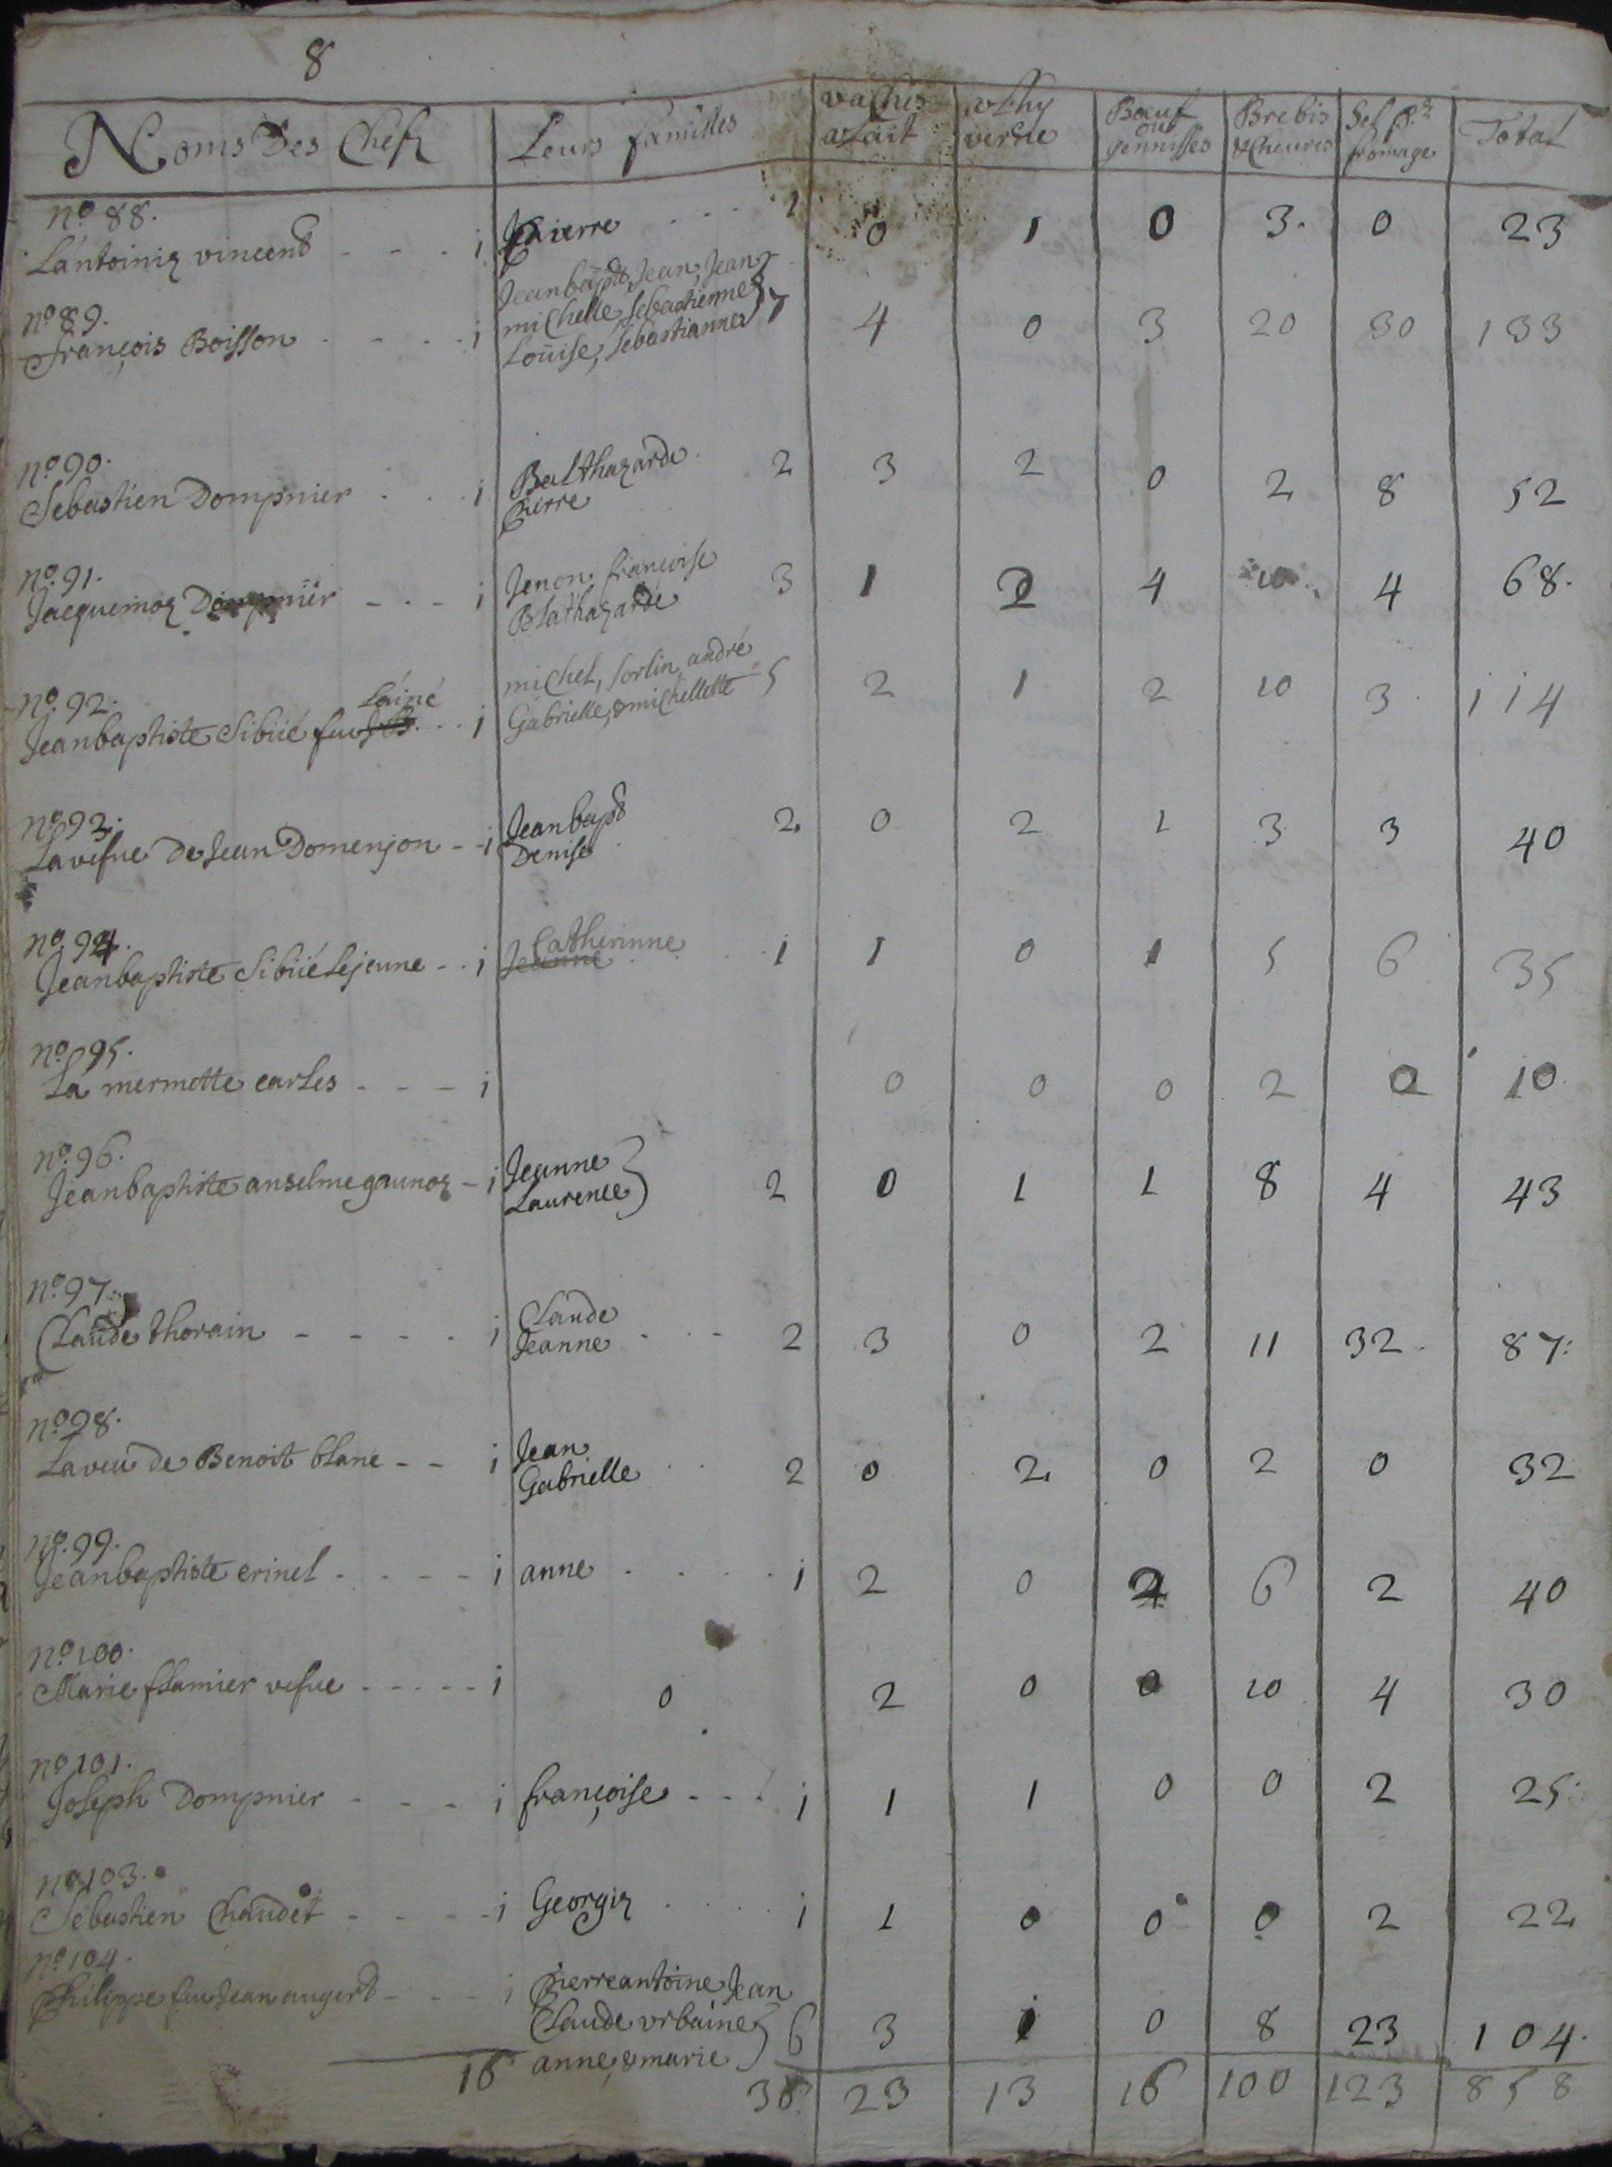 8
Noms Des Chefz Leurs familles vaches alait vthy verne Bœuf ou gennisses Brebis & Cheures Sel pr fromage Total
No 88.
L'antoiniz vincend - - - i Pierre . . . 1 0 1 0 3. 0 23
Jeanbapte, Jean, Jean
No 89. michelle, sebastienne 7
françois Boisson . . . . i Loüise, sebastianne 4 0 3 20 30 133
No 90.
Sebastien Dompnier . . . i Balthazarde 2 3 2 0 2 8 52
Pierre
No 91.
Jacquemoz Dompnier - . - i Jenon françoise 3 1 2 4 10 4 68.
Blathazarde
No 92. L'ainé michel, sorlin, andré
Jeanbaptiste Sibüé feu . . i Gabrielle, & michellette 5 2 1 2 10 3 114
No 93.
La vefue De Jean Domenjon - - i Jean bapt 2 0 2 1 3 3 40
Denise
No 94. Catherinne
Jeanbaptiste Sibüé Lejeune - . i Jeanne . . . i 1 0 1 5 6 35
No 95.
La mermette carles . - - i 0 0 0 2 0 10
No 96.
Jeanbaptiste anselme gaunoz - i Jeanne
Laurence 2 0 1 1 8 4 43
No 97.
Claude thorain - - - . i Claude
Jeanne . . - 2 3 0 2 11 32. 87:
No 98.
La veu de Benoit blanc - - i Jean
Gabrielle . . 2 0 2 0 2 0 32
No 99.
Jeanbaptiste crinel . - - - i anne . . . . i 2 0 2 6 2 40
No 100.
Marie flamier vefue - - - - - i 0 2 0 0 10 4 30
No 101.
Joseph Dompnier - - - i françoise - - . i 1 1 0 0 2 25.
No 103.
Sebastien Chaudet - - - - i Georgiz . . . . i 1 0 0 0 2 22
No 104.
Philippe feu Jean augerd - - - i Pierre antoine Jean
Claude vrbaine 6 3 1 0 8 23 104.
16 anne, & marie
38 23 13 16 100 123 858